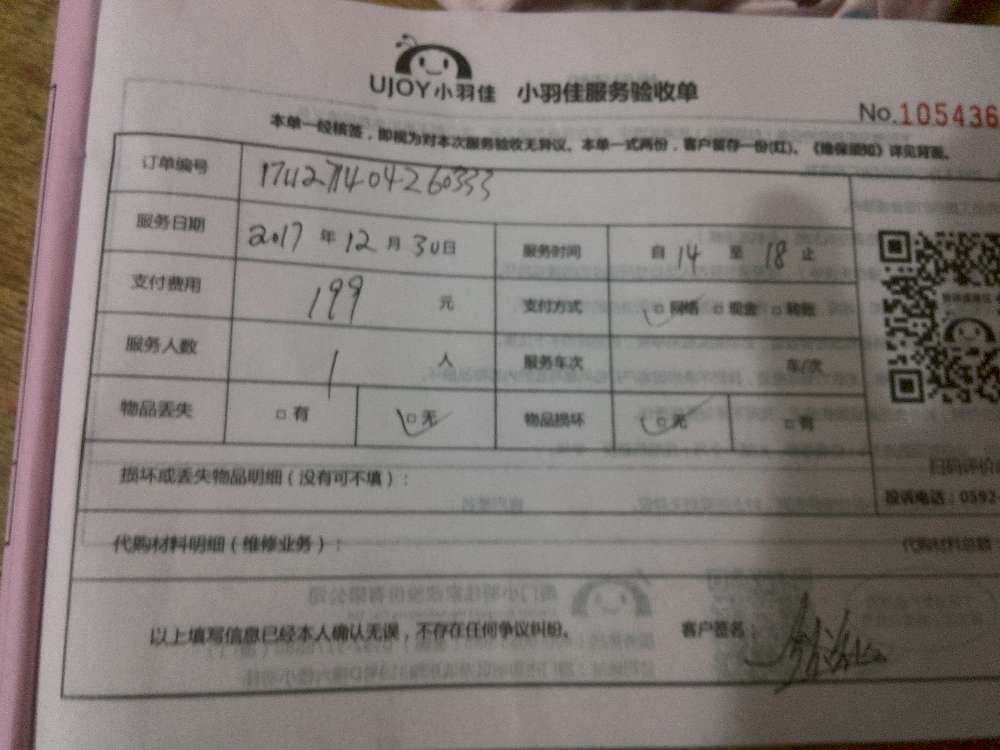 UJOY小羽佳 小羽佳服务验收单
No.105436
本单一经核签，即视为对本次服务验收无异议。本单一式两份，客户留存一份(红)。《维保须知》详见背面。
订单编号
服务日期 2017 年 12 月 30 日 服务时间 自 14 至 18 止
支付费用 199 元 支付方式 □ 网络 □ 现金 □ 转账
服务人数 1 人 服务车次 车/次
物品丢失 □ 有 □ 无 物品损坏 □ 无 □ 有
损坏或丢失物品明细（没有可不填）：
扫码评价
投诉电话：0592-
代购材料明细（维修业务）：
代购材料总额
以上填写信息已经本人确认无误，不存在任何争议纠纷。 客户签名：